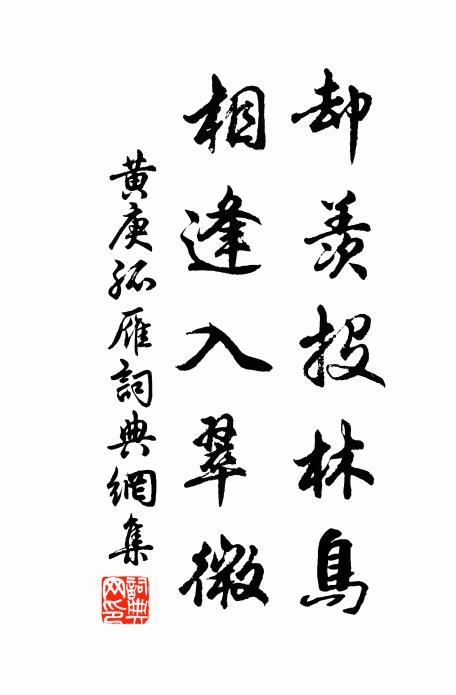 却羨投林鳥
相逢入翠微
黄庚孤雁詞典網集
詞典網印